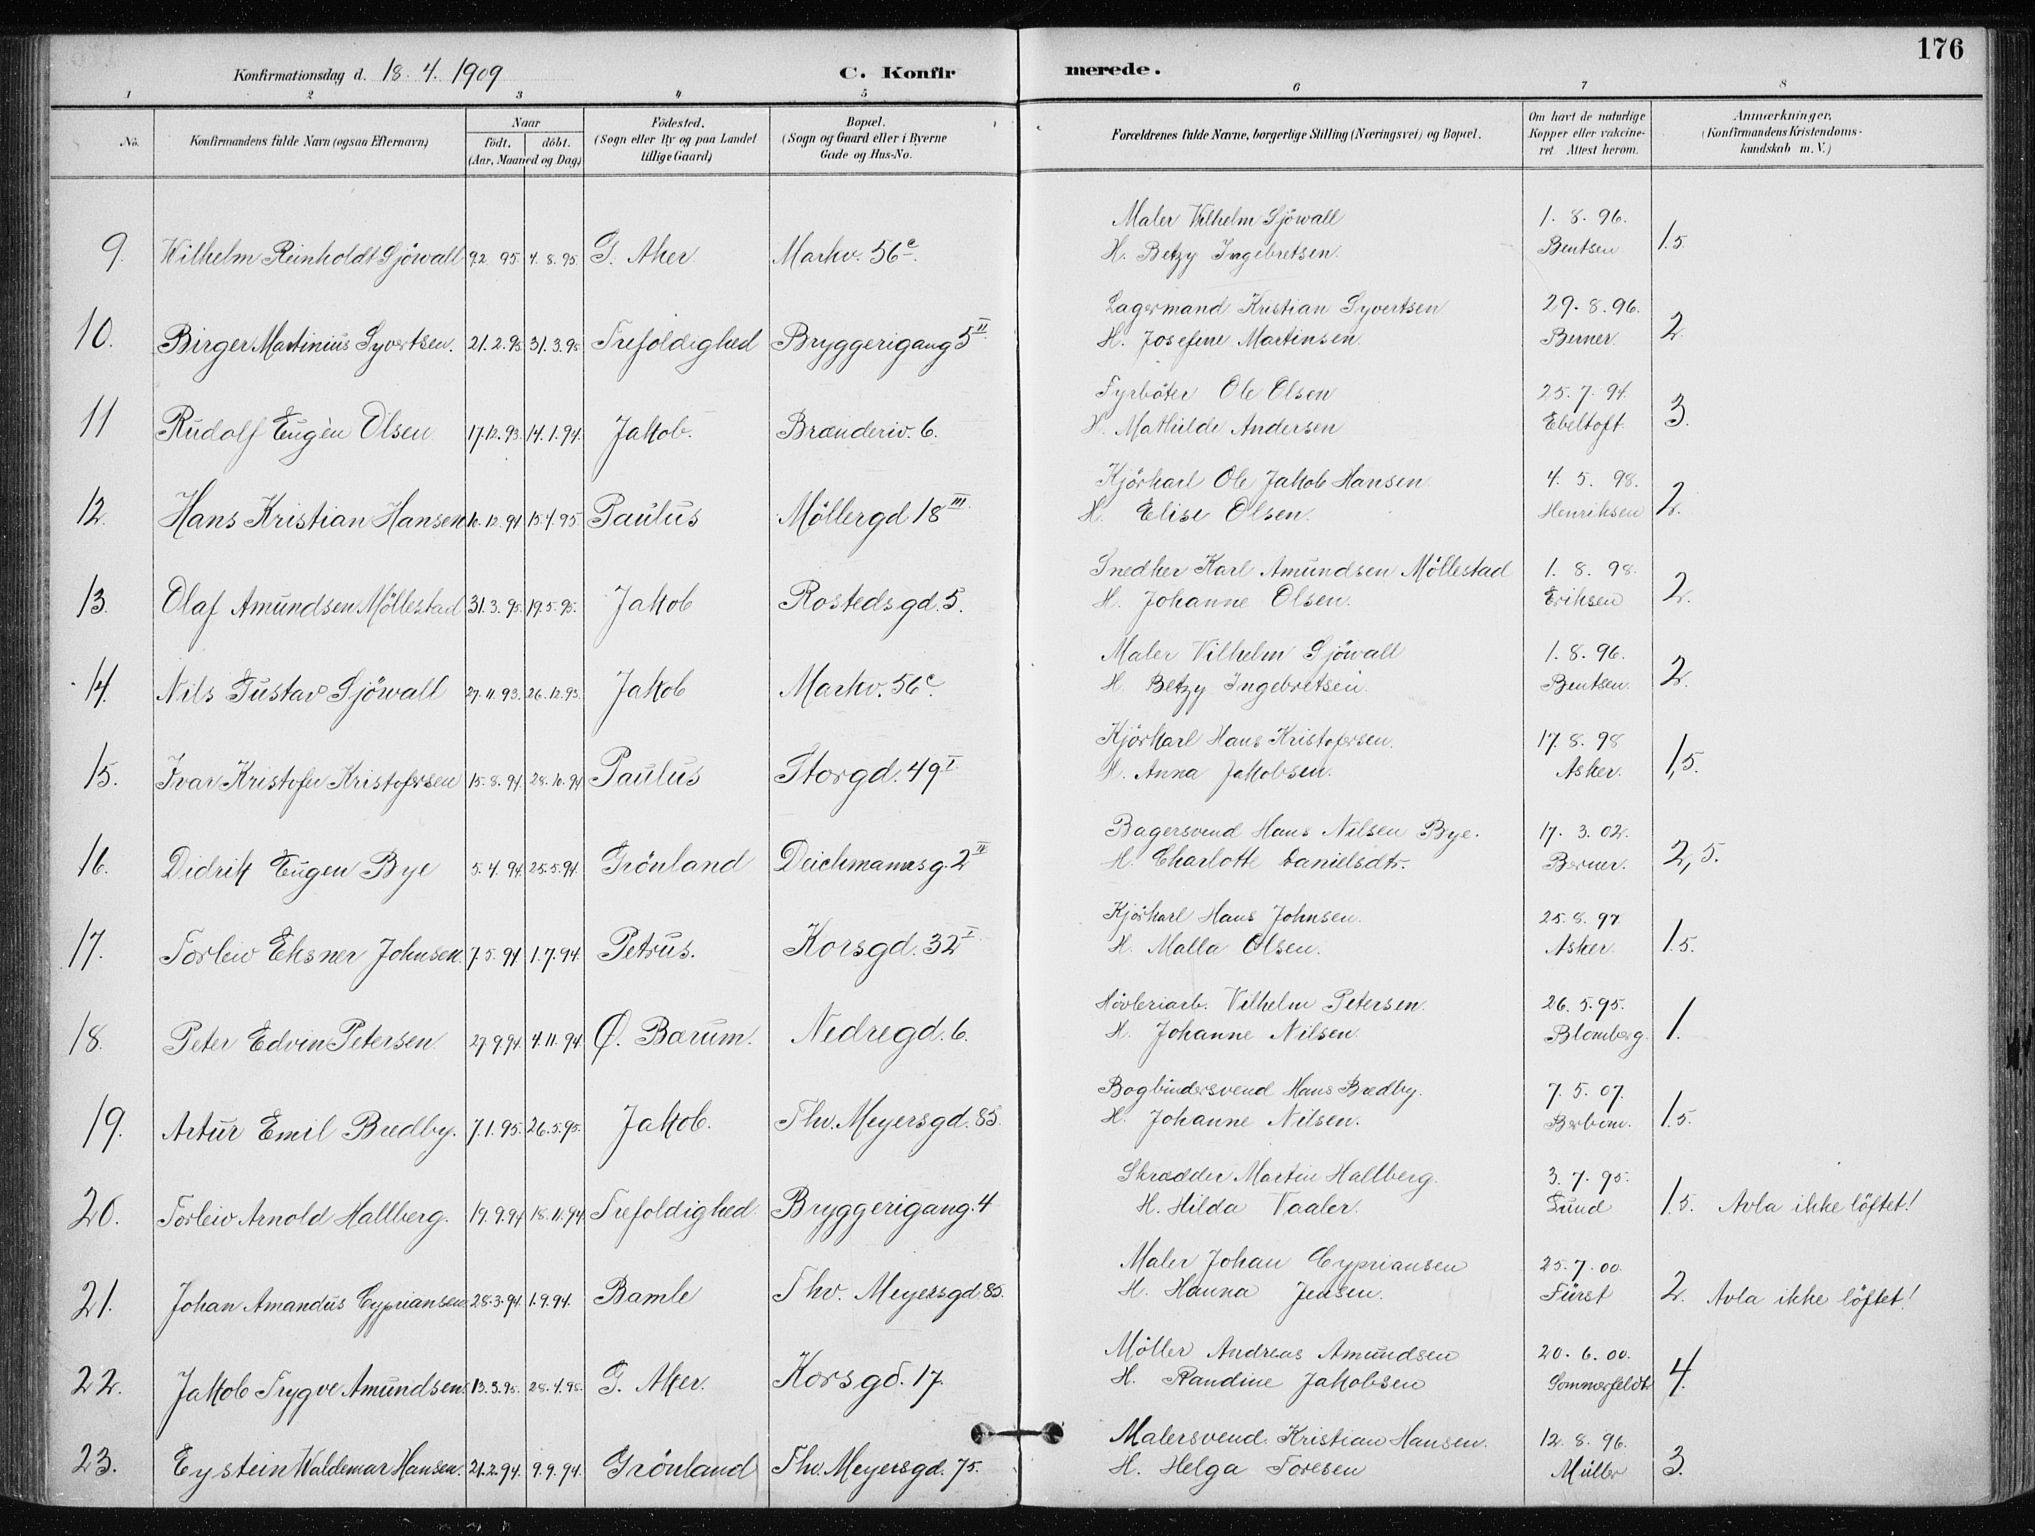 176
Konfirmationsdag d. 18. 4. 1909 C. Konfir merede.
1 2 3 4 5 6 7 8
No. Konfirmandens fulde Navn (ogsaa Efternavn) Naar födt. döbt. (Aar, Maaned og Dag) Födested. (Sogn eller By og paa Landet tillige Gaard) Bopæl. (Sogn og Gaard eller i Byerne Gade og Hus-No. Forældrenes fulde Navne, borgerlige Stilling (Næringsvei) og Bopæl. Om havt de naturlige Kopper eller vakcineret Attest herom. Anmærkninger, (Konfirmandens Kristendomskundskab m. V.)
Maler Vilhelm Sjöwall 1. 8. 96.
9. Wilhelm Reinholdt Sjöwall 9.2. 95 4. 8. 95. G. Aker Markv. 56c. H. Betzy Ingebretsen. Bentsen 1.5
Lagermand Kristian Syvertsen 29. 8. 96.
10. Birger Martinius Syvertsen. 21. 2. 95 31. 3. 95 Trefoldighed Bryggerigang 5 II. H. Josefine Martinsen. Berner. 2.
Fyrböter Ole Olsen 25. 7. 94.
11 Rudolf Eugèn Olsen 17.12.93. 14.1.94. Jakob. Brænderiv. 6. H. Mathilde Andersen Ebeltoft 3.
Kjörkarl Ole Jakob Hansen 4. 5. 98.
12. Hans Kristian Hansen 16.12.94 15.4.95 Paulus Möllergd 18 III. H. Elise Olsen. Henriksen 2.
Snedker Karl Amundsen Möllestad 1. 8. 98.
13. Olaf Amundsen Möllestad 31.3.95 19.5.95. Jakob Rostedsgd. 5. H. Johanne Olsen. Eriksen 2.
Maler Vilhelm Sjöwall 1. 8. 96.
14. Nils Gustav Sjöwall 27.11.93. 26.12.93. Jakob Markv. 56c. H. Betzy Ingebretsen. Bentsen. 2.
Kjörkarl Hans Kristofersen. 17. 8. 98
15. Ivar Kristofer Kristofersen 15. 8. 94. 28. 10. 94 Paulus Storgd. 49 I. H. Anna Jakobsen. Asker. 1,5.
Bagersvend Hans Nilsen Bye. 17. 3. 02.
16. Didrik Eugen Bye 5. 4. 94. 25.5.94. Grönland Deichmannsg. 2 II H. Charlotte Danielsdtr. Berner. 2,5.
Kjörkarl Hans Johnsen. 25. 8. 97
17. Torleiv Eksner Johnsen. 7. 5. 94 1.7.94. Petrus. Korsgd. 32 I. H. Malla Olsen. Asker. 1.5.
Hövleriarb. Vilhelm Petersen. 26. 5. 95.
18. Peter Edvin Petersen. 27.9.94. 4.11.94. Ø. Bærum. Nedregd. 6. H. Johanne Nilsen. Blomberg. 1.
Bogbindersvend Hans Bredby. 7. 5. 07.
19. Artur Emil Bredby. 7.1.95. 26.5.95. Jakob. Thv. Meyersgd. 85. H. Johanne Nilsen. 1.5.
Skrædder Martin Hallberg. 3. 7. 95.
20. Torleiv Arnold Hallberg. 19.9.94 18.11.94. Trefoldighed. Bryggerigang. 4 H. Hilda Vaaler. Lund 1.5. Avla ikke löftet!
Maler Johan Cypriansen 25. 7. 00.
21. Johan Amandus Cypriansen 28.3.94. 1.9.94. Bamle Thv. Meyersgd 85. H. Hanna Jensen. Fürst 2. Avla ikke löftet!
Möller Andreas Amundsen 20. 6. 00.
22. Jakob Trygve Amundsen. 13.3.95. 28.4.95. G. Aker. Korsgd. 17. H. Randine Jakobsen Sommerfeldt 4.
Malersvend. Kristian Hansen. 12. 8. 96.
23. Eystein Waldemar Hansen. 21.2.94. 9.9.94. Grönland Thv. Meyersgd. 75. H. Helga Toresen Müller 3.